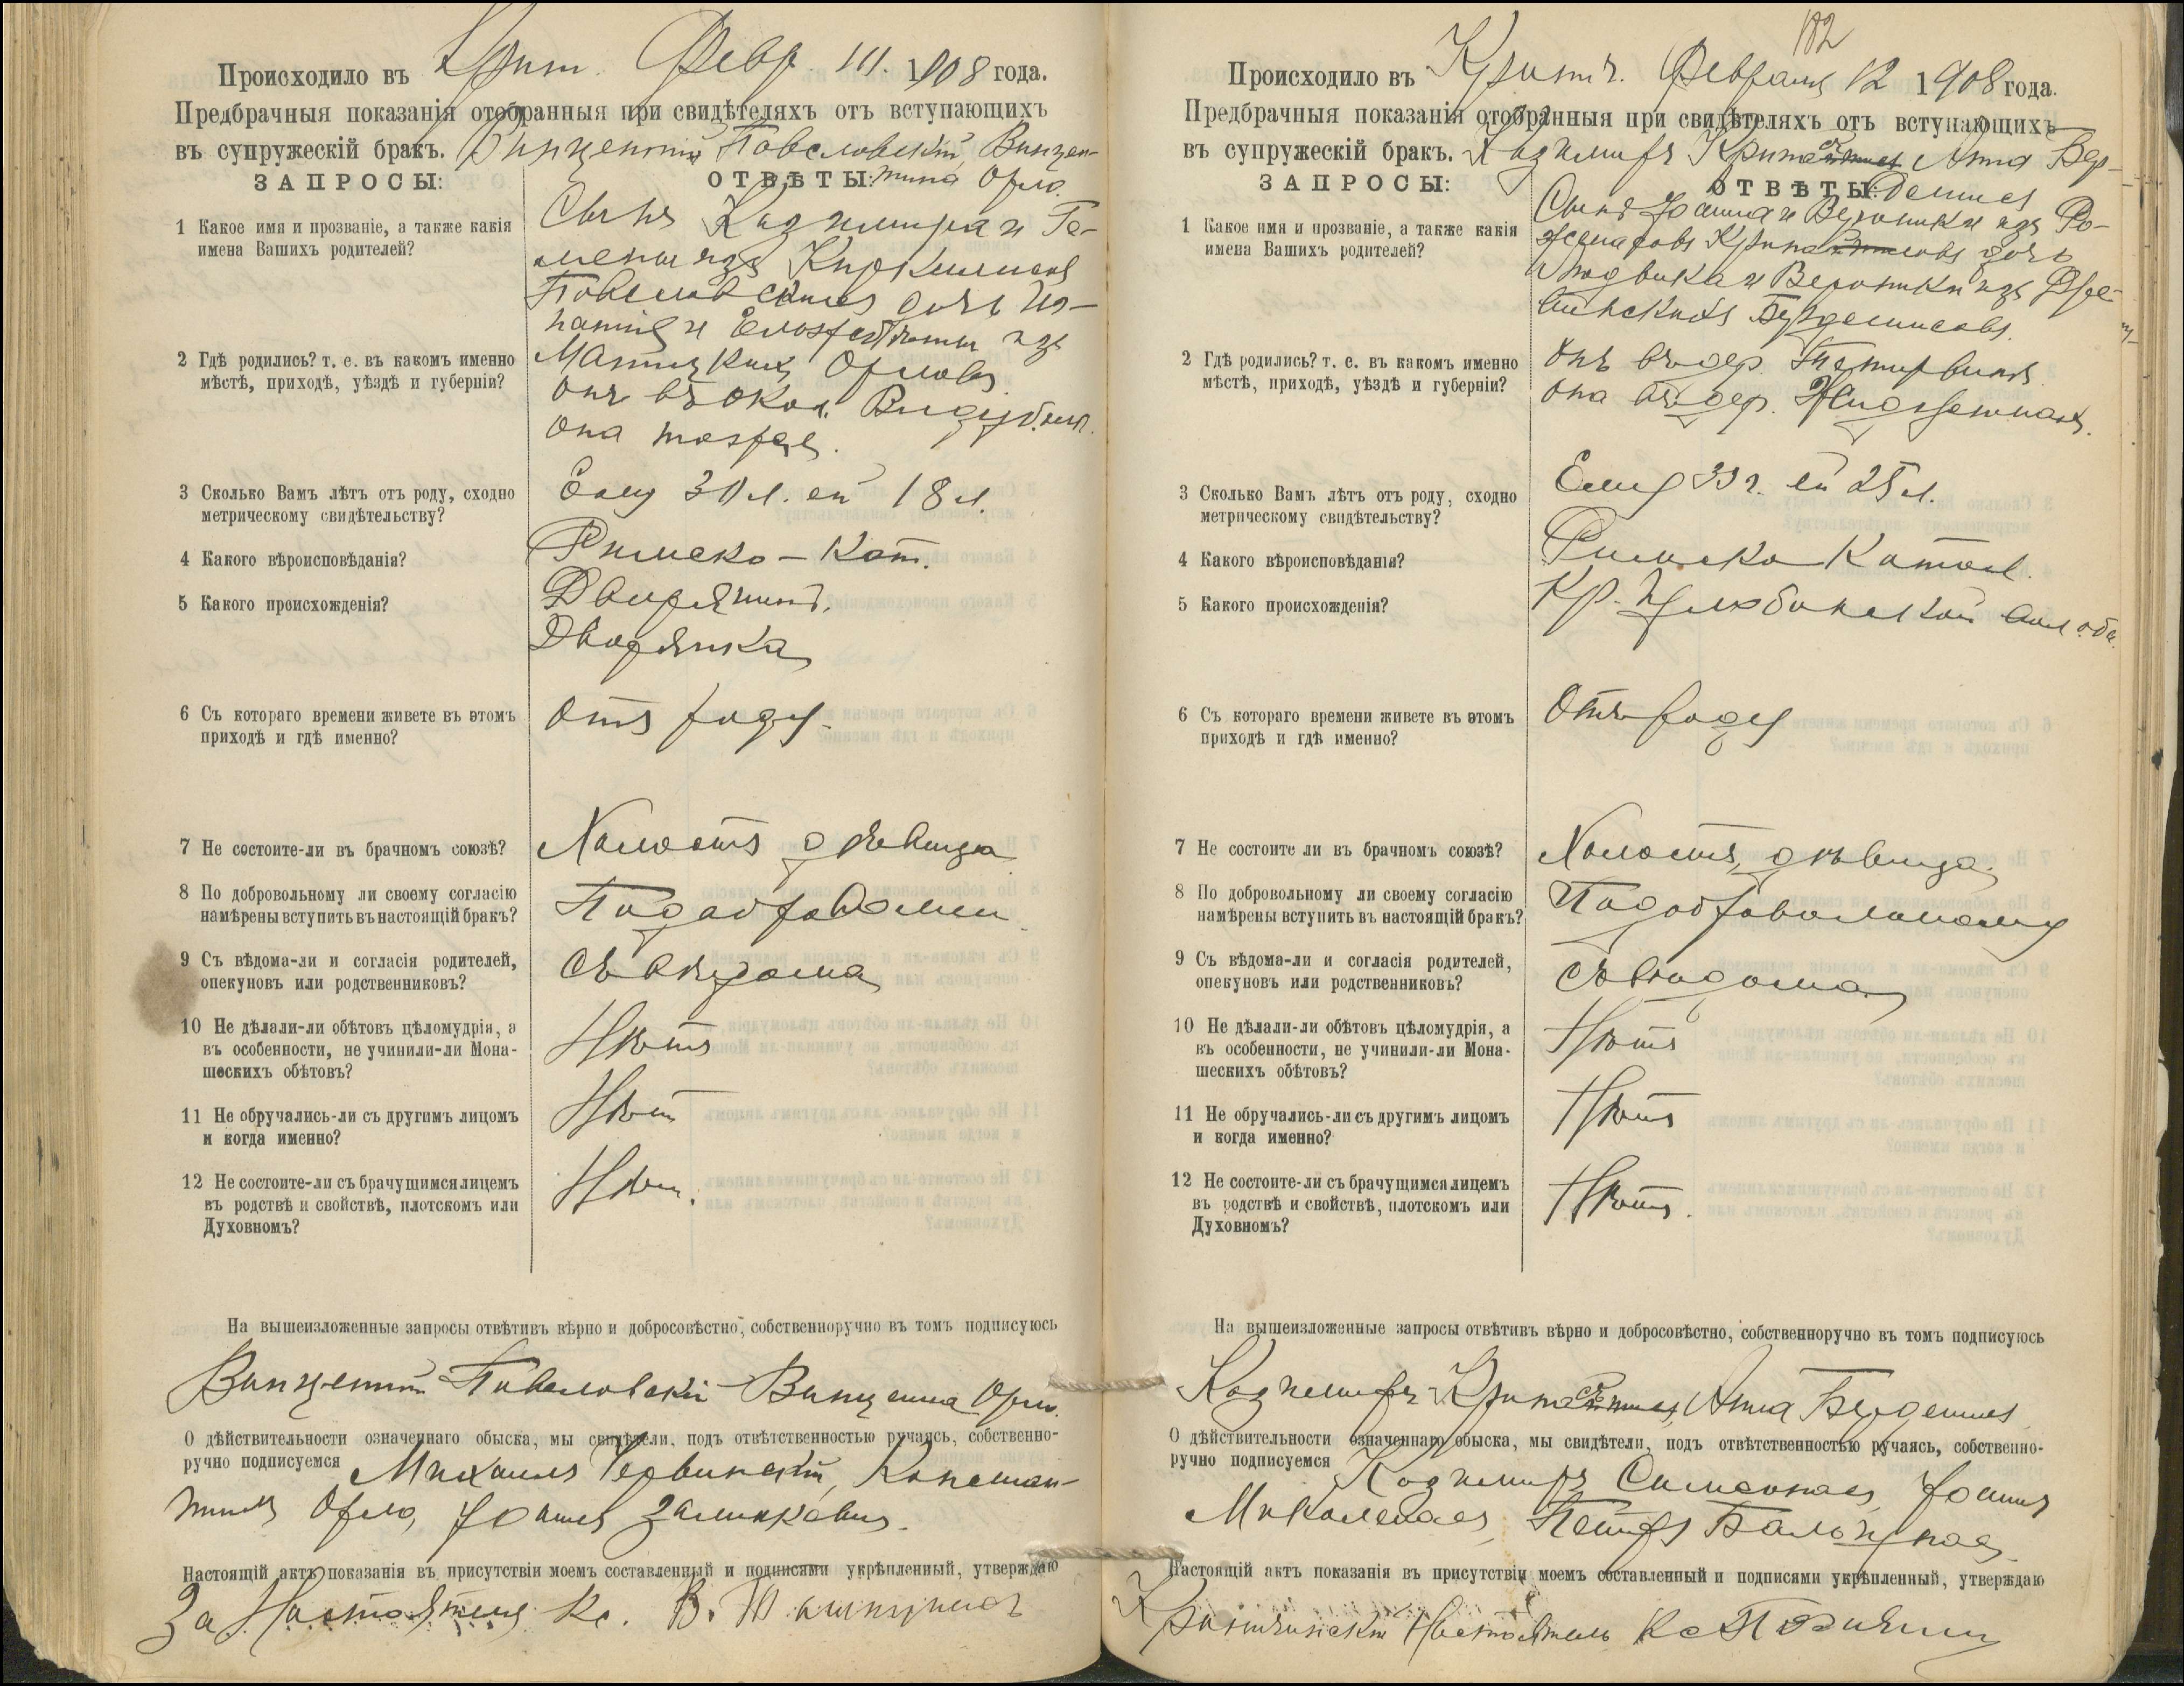 Происходило въ Крит. Февр. 1908 года.
Предбрачныя показанія отобранныя при свидѣтеляхъ отъ вступающихъ
въ супружескій бракъ. Винцентій Павеловскій Винцен-
ЗАПРОСЫ: ОТВѢТЫ: тина Орло.
1 Какое имя и прозваніе, а также какія
имена Вашихъ родителей?
Сынъ Казимира и
изъ
Павеловскихъ дочь Иг-
натія и изъ
Орловъ
2 Гдѣ родились? т. е. въ какомъ именно
мѣстѣ, приходѣ, уѣздѣ и губерніи?
онъ въ окол.
она тоже.
3 Сколько Вамъ лѣтъ отъ роду, сходно
метрическому свидѣтельству?
Ему 30 л. ей 18 л.
4 Какого вѣроисповѣданія?
Римско-Кат.
5 Какого происхожденія?
Дворянинъ.
Дворянка
6 Съ котораго времени живете въ этомъ
приходѣ и гдѣ именно?
Отъ роду.
7 Не состоите-ли въ брачномъ союзѣ?
Холостъ дѣвица
8 По добровольному ли своему согласію
намѣрены вступить въ настоящій бракъ?
9 Съ вѣдома-ли и согласія родителей,
опекуновъ или родственниковъ?
Съ вѣдома
10 Не дѣлали-ли обѣтовъ цѣломудрія, а
въ особенности, не учинили-ли Мона-
шескихъ обѣтовъ?
Нѣтъ
11 Не обручались-ли съ другимъ лицомъ
и когда именно?
Нѣтъ
12 Не состоите-ли съ брачущимся лицемъ
въ родствѣ и свойствѣ, плотскомъ или
Духовномъ?
Нѣтъ.
На вышеизложенные запросы отвѣтивъ вѣрно и добросовѣстно, собственноручно въ томъ подписуюсь
Винцентій Павеловскій Винцента Орло.
О дѣйствительности означеннаго обыска, мы свидѣтели, подъ отвѣтственностью ручаясь, собственно-
ручно подписуемся Михаилъ Червинскій, Констан-
тинъ Орло, Іоаннъ
Настоящій актъ показанія въ присутствіи моемъ составленный и подписями укрѣпленный, утверждаю
За Настоятеля Кс. В.
182
Происходило въ Критч. Февраля 12 1908 года.
Предбрачныя показанія отобранныя при свидѣтеляхъ отъ вступающихъ
въ супружескій бракъ. Казимиръ Анна Бер-
ЗАПРОСЫ: ОТВѢТЫ: деншес
1 Какое имя и прозваніе, а также какія
имена Вашихъ родителей?
Сынъ Іоанна и Вероники изъ
дочь
Людвика и Вероники изъ
2 Гдѣ родились? т. е. въ какомъ именно
мѣстѣ, приходѣ, уѣздѣ и губерніи?
Онъ въ дер.
Она въ дер.
3 Сколько Вамъ лѣтъ отъ роду, сходно
метрическому свидѣтельству?
Ему 33 г. ей 25 л.
4 Какого вѣроисповѣданія?
Римско Катол.
5 Какого происхожденія?
Кр.
6 Съ котораго времени живете въ этомъ
приходѣ и гдѣ именно?
Отъ роду
7 Не состоите ли въ брачномъ союзѣ?
Холостъ, дѣвица.
8 По добровольному ли своему согласію
намѣрены вступить въ настоящій бракъ?
По добровольному
9 Съ вѣдома-ли и согласія родителей,
опекуновъ или родственниковъ?
Съ вѣдома
10 Не дѣлали-ли обѣтовъ цѣломудрія, а
въ особенности, не учинили-ли Мона-
шескихъ обѣтовъ?
Нѣтъ
11 Не обручались-ли съ другимъ лицомъ
и когда именно?
Нѣтъ
12 Не состоите-ли съ брачущимся лицемъ
въ родствѣ и свойствѣ, плотскомъ или
Духовномъ?
Нѣтъ.
На вышеизложенные запросы отвѣтивъ вѣрно и добросовѣстно, собственноручно въ томъ подписуюсь
Казимиръ Анна
О дѣйствительности означеннаго обыска, мы свидѣтели, подъ отвѣтственностью ручаясь, собственно-
ручно подписуемся Казимиръ Іоаннъ
Петръ
Настоящій актъ показанія въ присутствіи моемъ составленный и подписями укрѣпленный, утверждаю
Настоятель Кс.